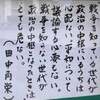 戦争を知っている世代が
政治の中枢にいるうちは
心配ない。平和について
議論する必要もない。
だが、戦争を知らない世代が
政治の中枢になったときは
とても危ない。
(田中角栄)